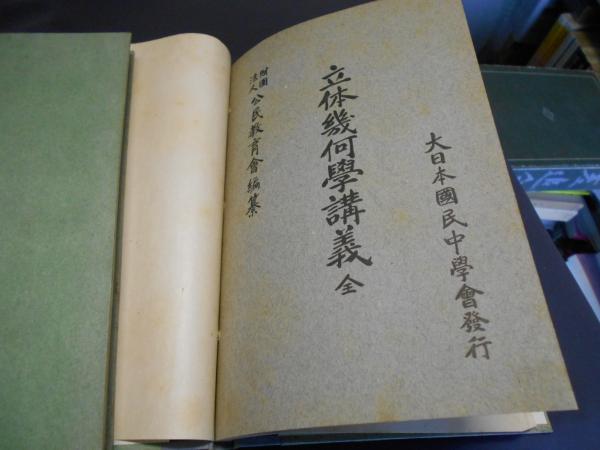 大日本國民中學會發行
立体幾何學講義 全
財團法人 公民教育會編纂